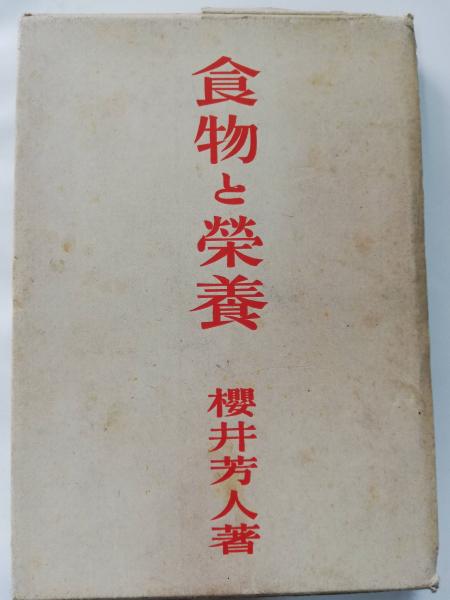 食物と榮養
櫻井芳人著